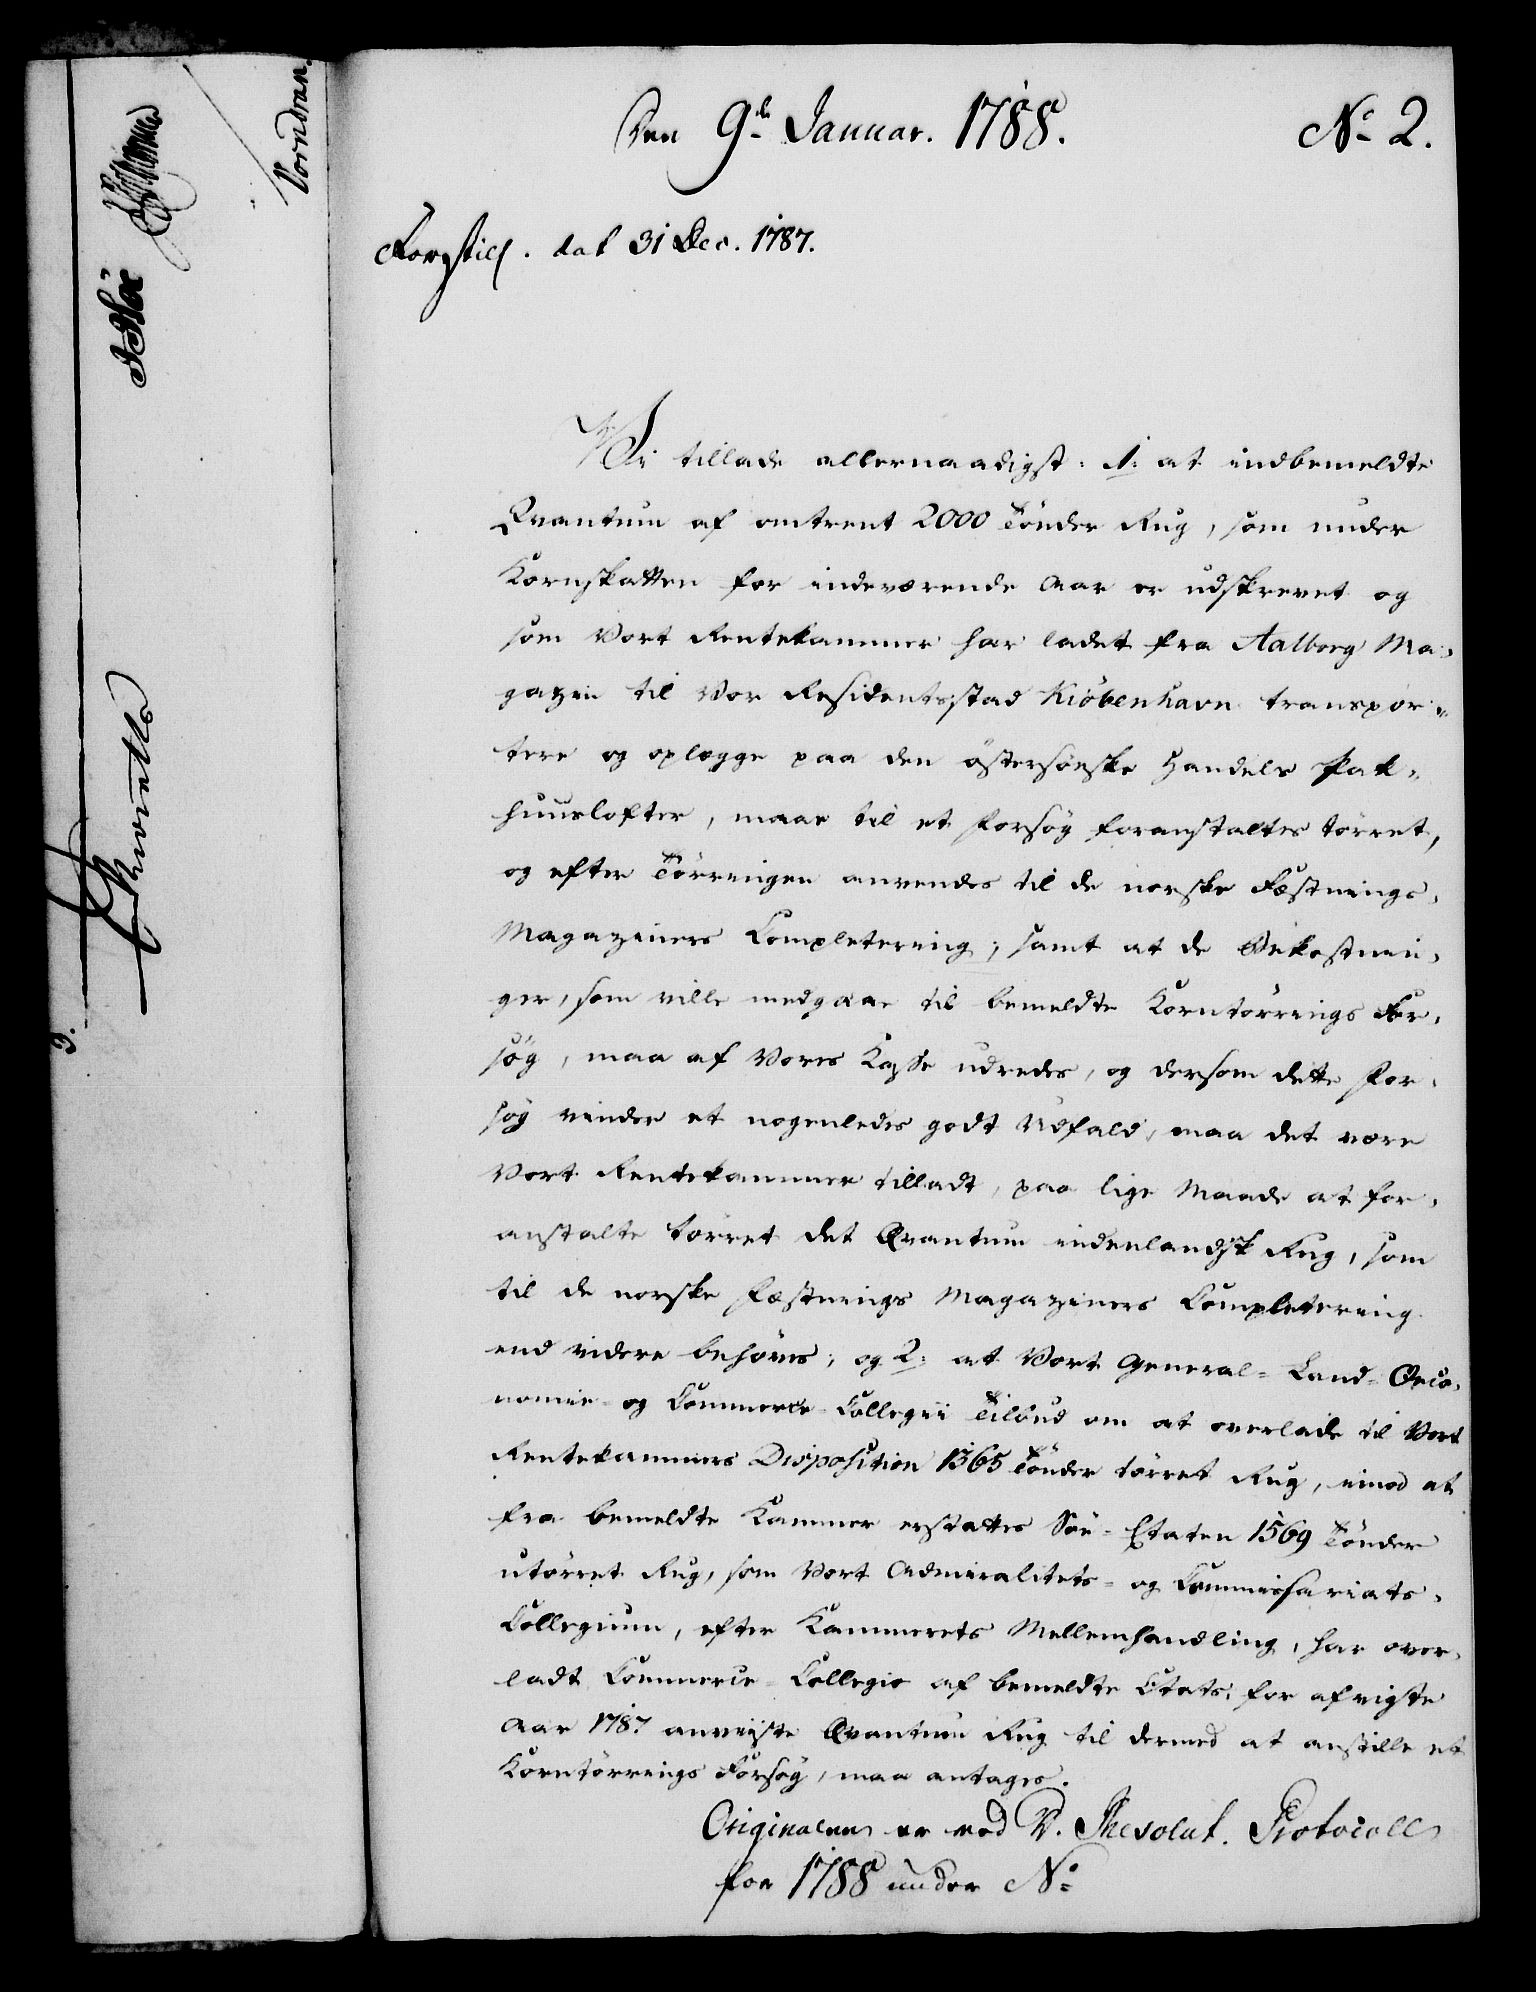 Den 9de Januar. 1788.
No 2.
Forestill. dat 31 Dec. 1787.
Vi tillade allernaadigst: 1: at indbemeldte
Qvantum af omtrent 2000 Tönder Rug, som under
Kornskatten for indeværende Aar er udskrevet og
som Vort Rentekammer har ladet fra Aalborg Ma-
gazin til Vor Residentsstad Kiöbenhavn transpor-
tere og oplægge paa den östersöiske Handels Pak-
huuslofter, maae til et Forsög foranstaltes törret,
og efter Törringen anvendes til de norske Fæstnings-
Magaziners Completering; samt at de Bekostnin-
ger, som ville medgaae til bemeldte Korntörrings For-
sög, maa af Vores Kasse udredes, og dersom dette For-
sög vinder et nogenledes godt Udfald, maa det være
Vort Rentekammer tilladt, paa lige Maade at for-
anstalte törret det Qvantum indenlandsk Rug, som
til de norske Fæstnings Magaziners Completering
end videre behöves; og 2: at Vort General- Land- Oeco-
nomie- og Commerce-Collegii Tilbud om at overlade til Vort
Rentekammers Disposition 1365 Tönder törret Rug, imod at
fra bemeldte Kammer erstattes Söe-Etaten 1569 Tönder
utörret Rug, som Vort Admiralitets- og Commissariats-
Collegium, efter Kammerets Mellemhandling, har over-
ladt Commerce-Collegio af bemeldte Etats, for afvigte
Aar 1787 anviiste Qvantum Rug til dermed at anstille et
Korntörrings Forsög, maa antages.
Originalen er ved V. Resolut. Protocoll
for 1788 under No
Vorndran.
3.